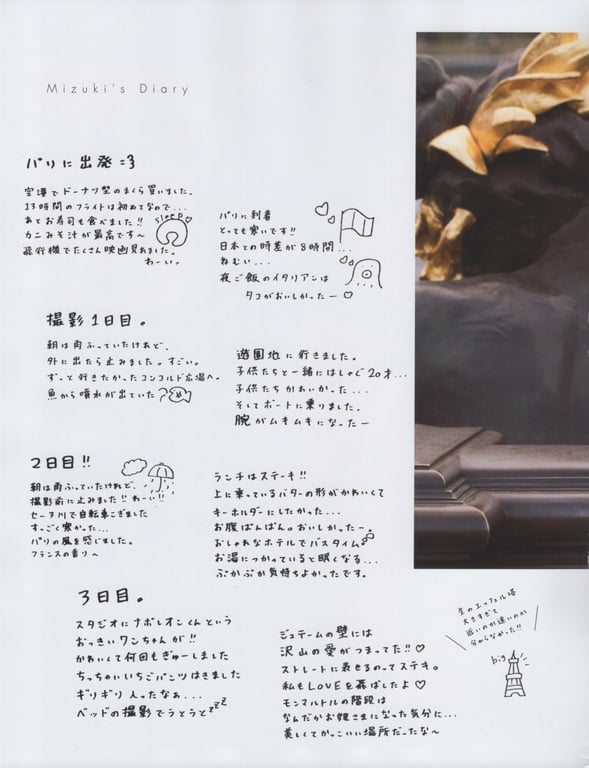 Mizuki's Diary
パリに出発
空港でドーナツ型のまくら買いました。
13時間のフライトは初めてなので...
あとお寿司も食べました!!
カニみそ汁が最高です〜
飛行機でたくさん映画見ました。
わーい。
sleep
パリに到着
とっても寒いです!!
日本との時差が8時間...
ねむい...
夜ご飯のイタリアンは
タコがおいしかったー♡
撮影1日目。
朝は雨ふっていたけれど、
外に出たら止みました。すごい。
ずっと行きたかったコンコルド広場へ。
魚から噴水が出ていた
遊園地に行きました。
子供たちと一緒にはしゃぐ20才...
子供たちかわいかった...
そしてボートに乗りました。
腕がムキムキになったー
2日目!!
朝は雨ふっていたけれど、
撮影前に止みました!!わーい!!
セーヌ川で自転車こぎました
すっごく寒かった...
パリの風を感じました。
フランスの香り〜
ランチはステーキ!!
上に乗っているバターの形がかわいくて
キーホルダーにしたかった...
お腹ぱんぱん。おいしかったー。
おしゃれなホテルでバスタイム
お湯につかっていると眠くなる...
ぷかぷか気持ちよかったです。
3日目。
スタジオにナポレオンくんという
おっきいワンちゃんが!!
かわいくて何回もぎゅーしました
ちっちゃいいちごパンツはきました
ギリギリ入ったなぁ...
ベッドの撮影でうとうとzzz
ジュテームの壁には
沢山の愛がつまってた!!♡
ストレートに表せるのってステキ。
私もLOVEを飛ばしたよ♡
モンマルトルの階段は
なんだかお姫さまになった気分に...
美しくてかっこいい場所だったな〜
生のエッフェル塔
大きすぎて
近いのか遠いのか
分からなかった!!
big